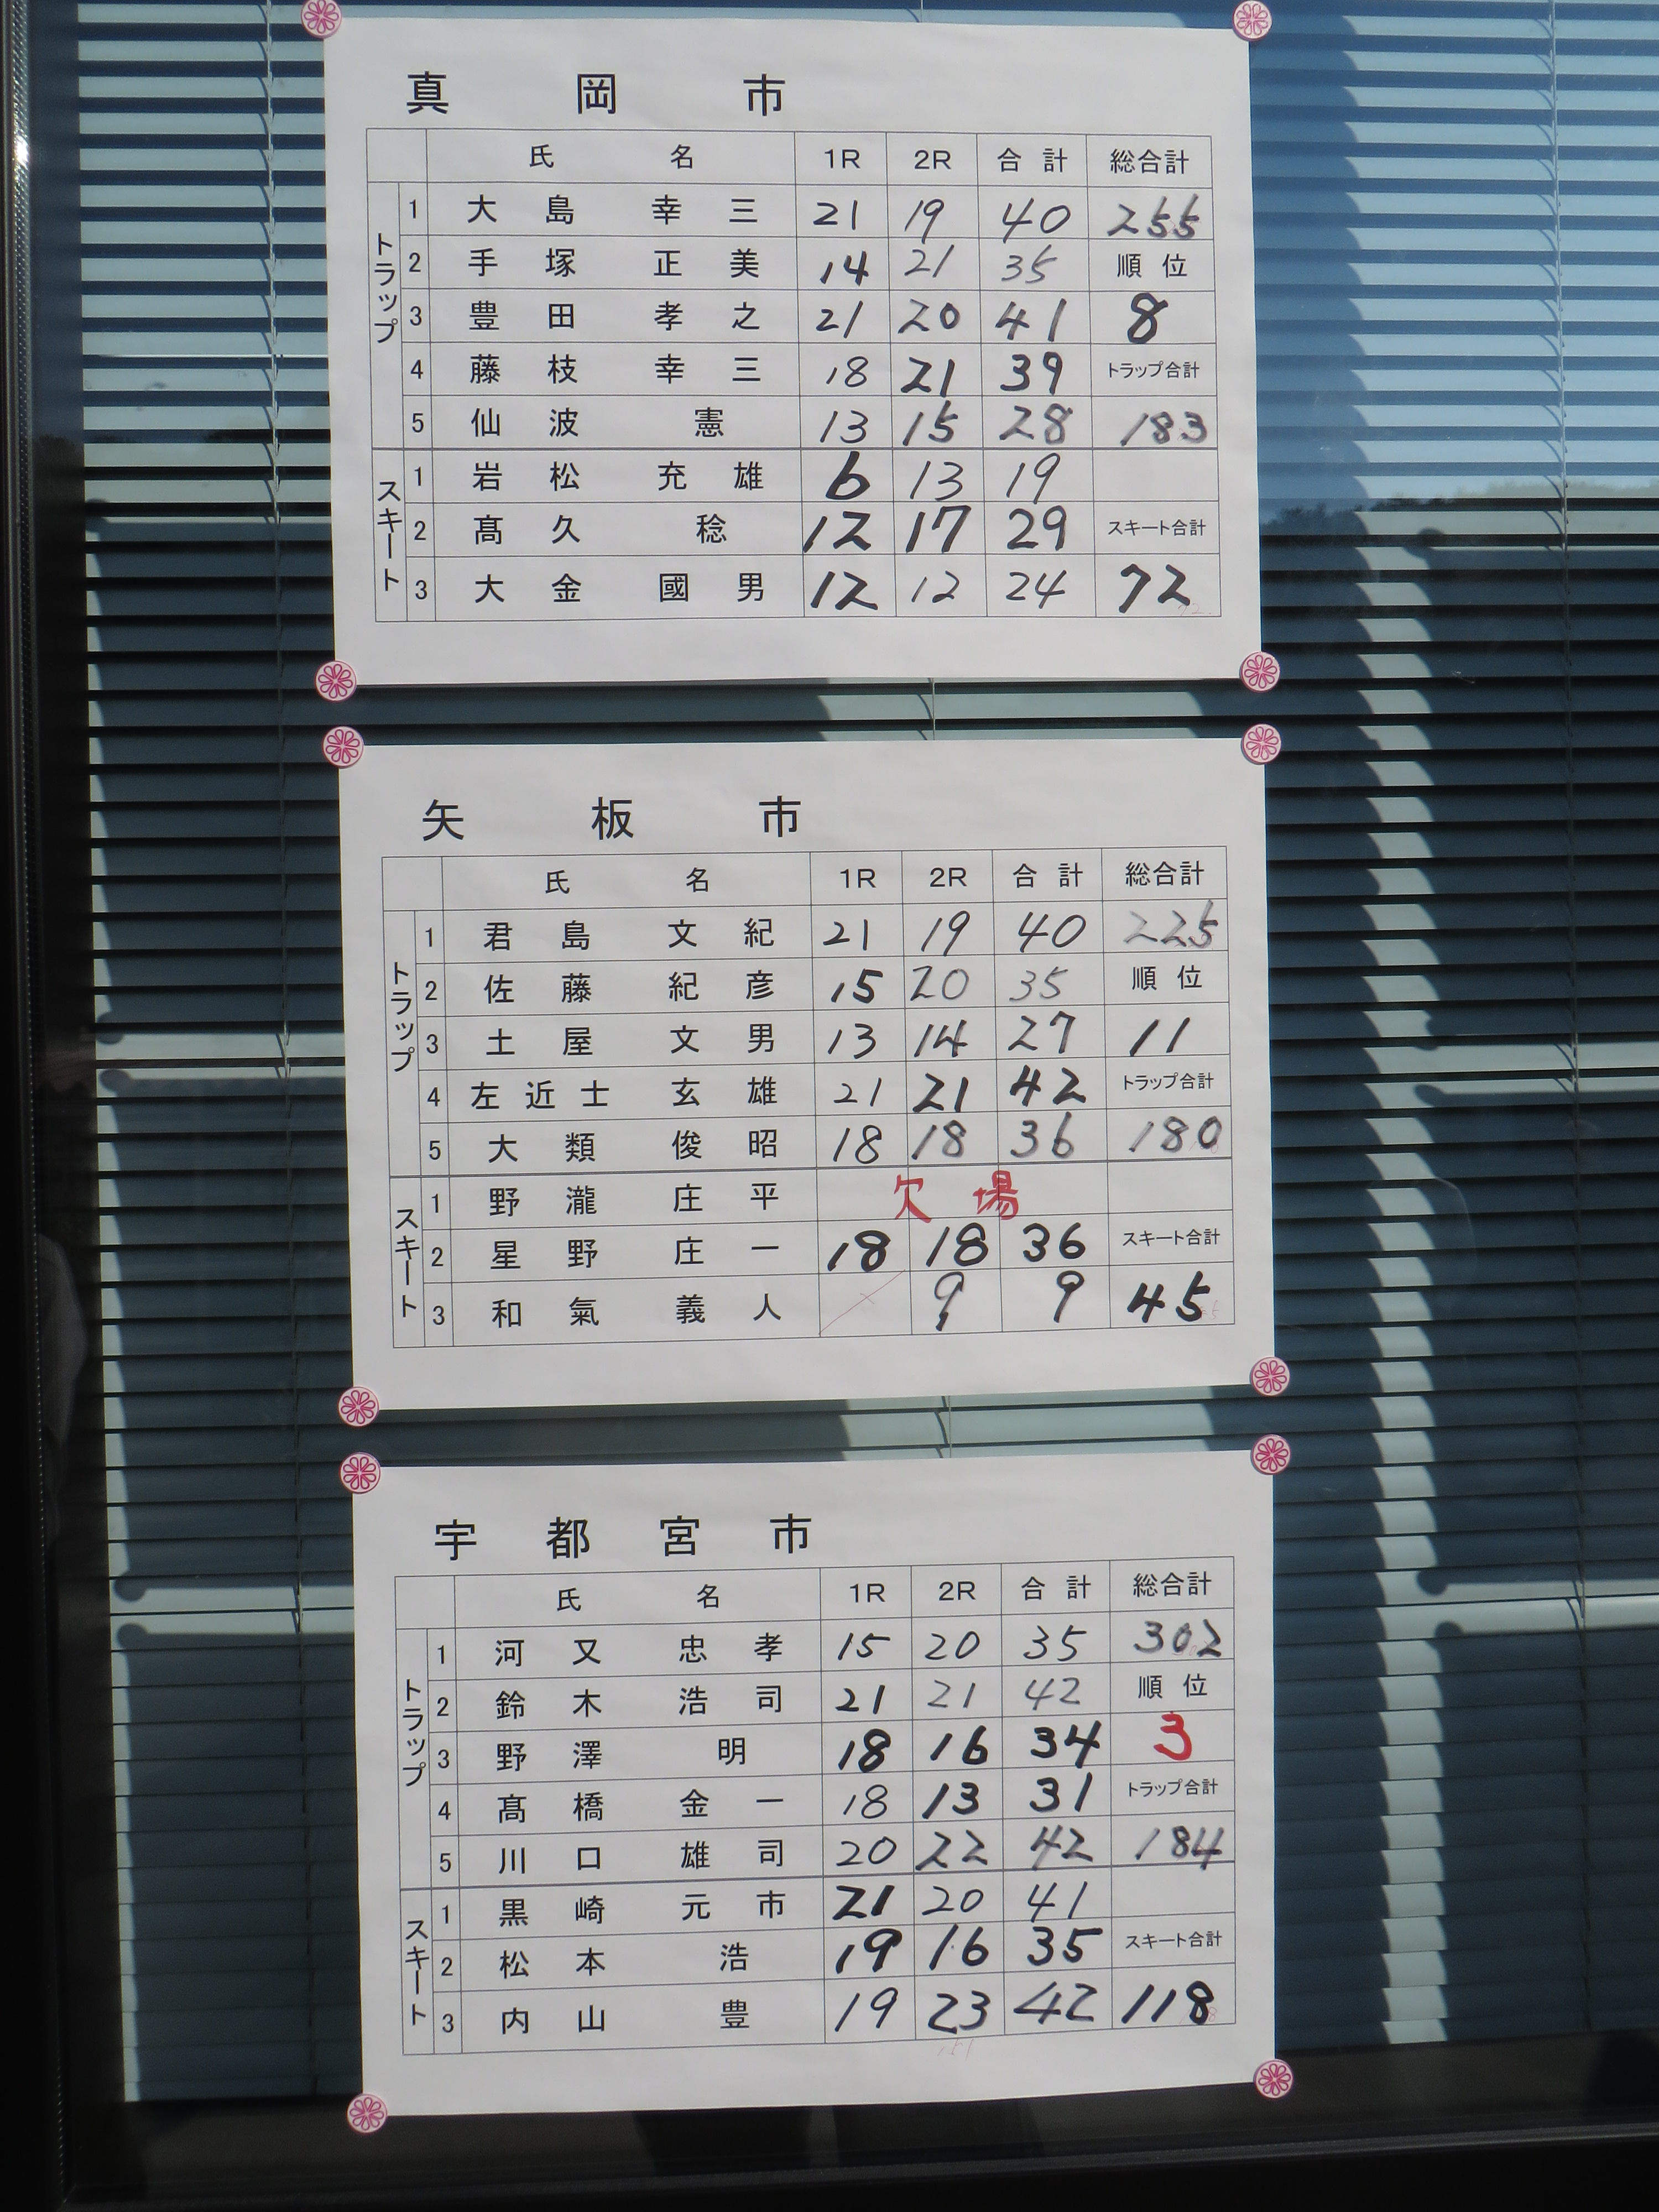 真岡市
氏名 1R 2R 合計 総合計
トラップ
1 大島幸三 21 19 40 255
2 手塚正美 14 21 35 順位
3 豊田孝之 21 20 41 8
4 藤枝幸三 18 21 39 トラップ合計
5 仙波憲 13 15 28 183
スキート
1 岩松充雄 6 13 19
2 髙久稔 12 17 29 スキート合計
3 大金國男 12 12 24 72
矢板市
氏名 1R 2R 合計 総合計
トラップ
1 君島文紀 21 19 40 225
2 佐藤紀彦 15 20 35 順位
3 土屋文男 13 14 27 11
4 左近士玄雄 21 21 42 トラップ合計
5 大類俊昭 18 18 36 180
スキート
1 野瀧庄平 欠場
2 星野庄一 18 18 36 スキート合計
3 和氣義人 9 9 45
宇都宮市
氏名 1R 2R 合計 総合計
トラップ
1 河又忠孝 15 20 35 302
2 鈴木浩司 21 21 42 順位
3 野澤明 18 16 34 3
4 髙橋金一 18 13 31 トラップ合計
5 川口雄司 20 22 42 184
スキート
1 黒崎元市 21 20 41
2 松本浩 19 16 35 スキート合計
3 内山豊 19 23 42 118